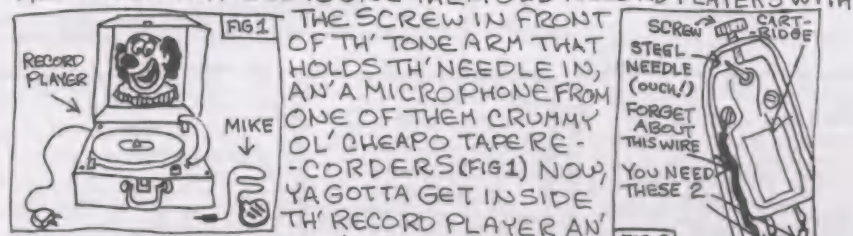 PLAYERS WITH
FIG 1
RECORD
PLAYER
MIKE
THE SCREW IN FRONT
OF TH' TONE ARM THAT
HOLDS TH' NEEDLE IN,
AN' A MICROPHONE FROM
ONE OF THEM CRUMMY
OL' CHEAPO TAPE RE-
-CORDERS (FIG 1) NOW,
YA GOTTA GET INSIDE
TH' RECORD PLAYER AN'
SCREW
CART-
-RIDGE
STEEL
NEEDLE
(OUCH!)
FORGET
ABOUT
THIS WIRE
YOU NEED
THESE 2